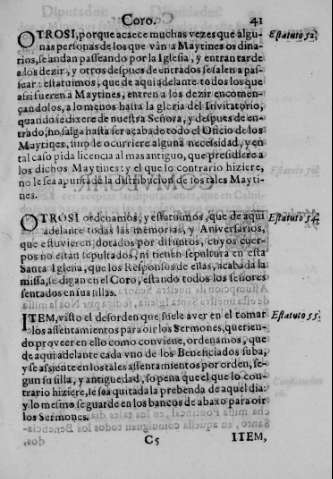 Coro. 41
OTROSI, porque acaece muchas vezes que algu- Estatuto 52.
nas personas de los que vàn a Maytines ordina-
rios, se andan passeando por la Iglesia, y entran tarde
a los dezir, y otros despues de entrados se salen a pas-
sear: estatuimos, que de aqui adelante todos los que
assi fueren a Maytines, entren a los dezir encomen-
çandolos, a lo menos hasta la gloria del Invitatorio,
quando se dixere de nuestra Señora, y despues de en-
trado, no salga hasta ser acabado todo el Oficio de los
Maytines, sino le ocurriere alguna necessidad, y en
tal caso pida licencia al mas antiguo, que presidiere a
los dichos Maytines: y el que lo contrario hiziere,
no le sea apuntada la distribucion de los tales Mayti-
nes.
OTROSI ordenamos, y estatuimos, que de aqui Estatuto 54.
adelante todas las memorias, y Aniversarios,
que estuvieren dotados por difuntos, cuyos cuer-
pos no estàn sepultados, ni tienen sepultura en esta
Santa Iglesia, que los Responsos de ellas, acabada la
missa, se digan en el Coro, estando todos los señores
sentados en sus sillas.
ITEM, visto el desorden que suele aver en el tomar Estatuto 55.
los assentamientos para oir los Sermones, querien-
do proveer en ello como conviene, ordenamos, que
de aqui adelante cada vno de los Beneficiados suba,
y se assiente en los tales assentamientos por orden, se-
gun su silla, y antiguedad, so pena que el que lo con-
trario hiziere, le sea quitada la prebenda de aquel dia:
y lo mesmo se guarde en los bancos de abaxo para oir
los Sermones.
C5 ITEM,